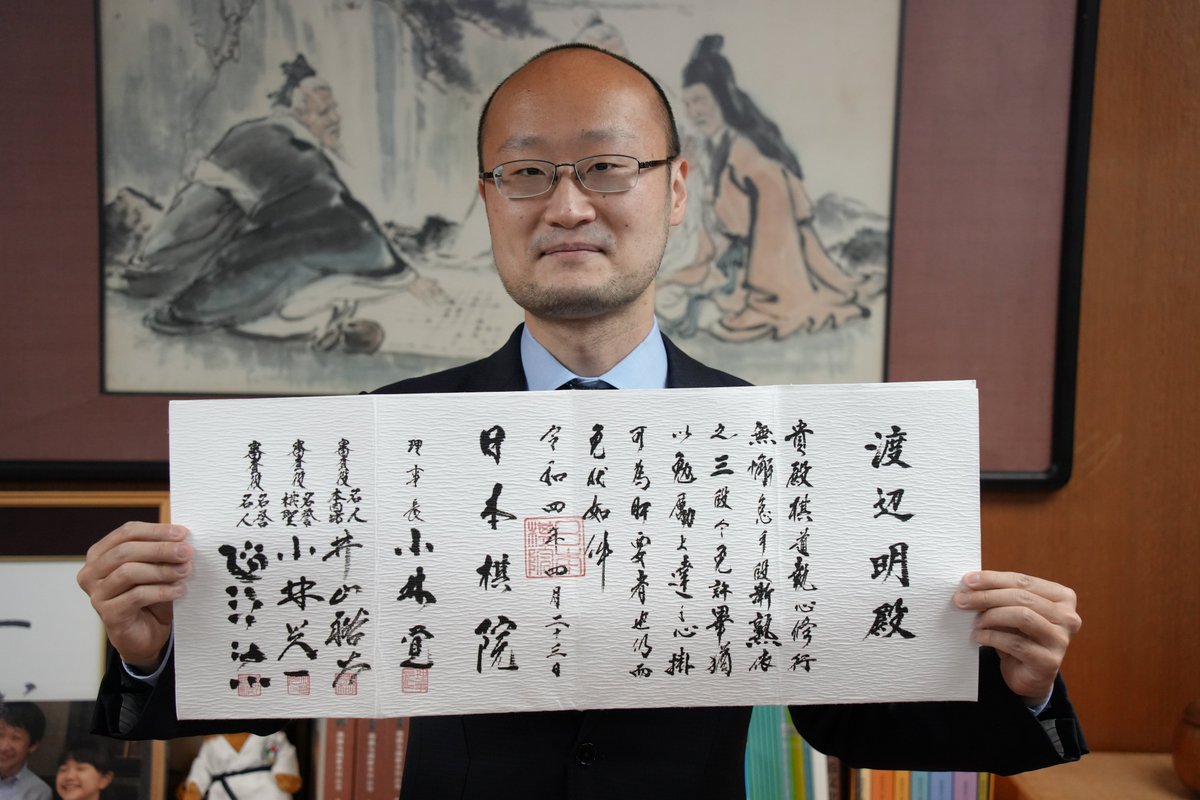 渡辺明殿
貴殿棋道執心修行
無懈怠手段漸熟依
之三段令免許畢猶
以勉勵上達之心掛
可為肝要者也仍而
免状如件
令和四年四月二十三日
日本棋院
理事長 小林覚
審査役 名人 本因坊 井山裕太
審査役 名誉 棋聖 小林光一
審査役 名誉 名人